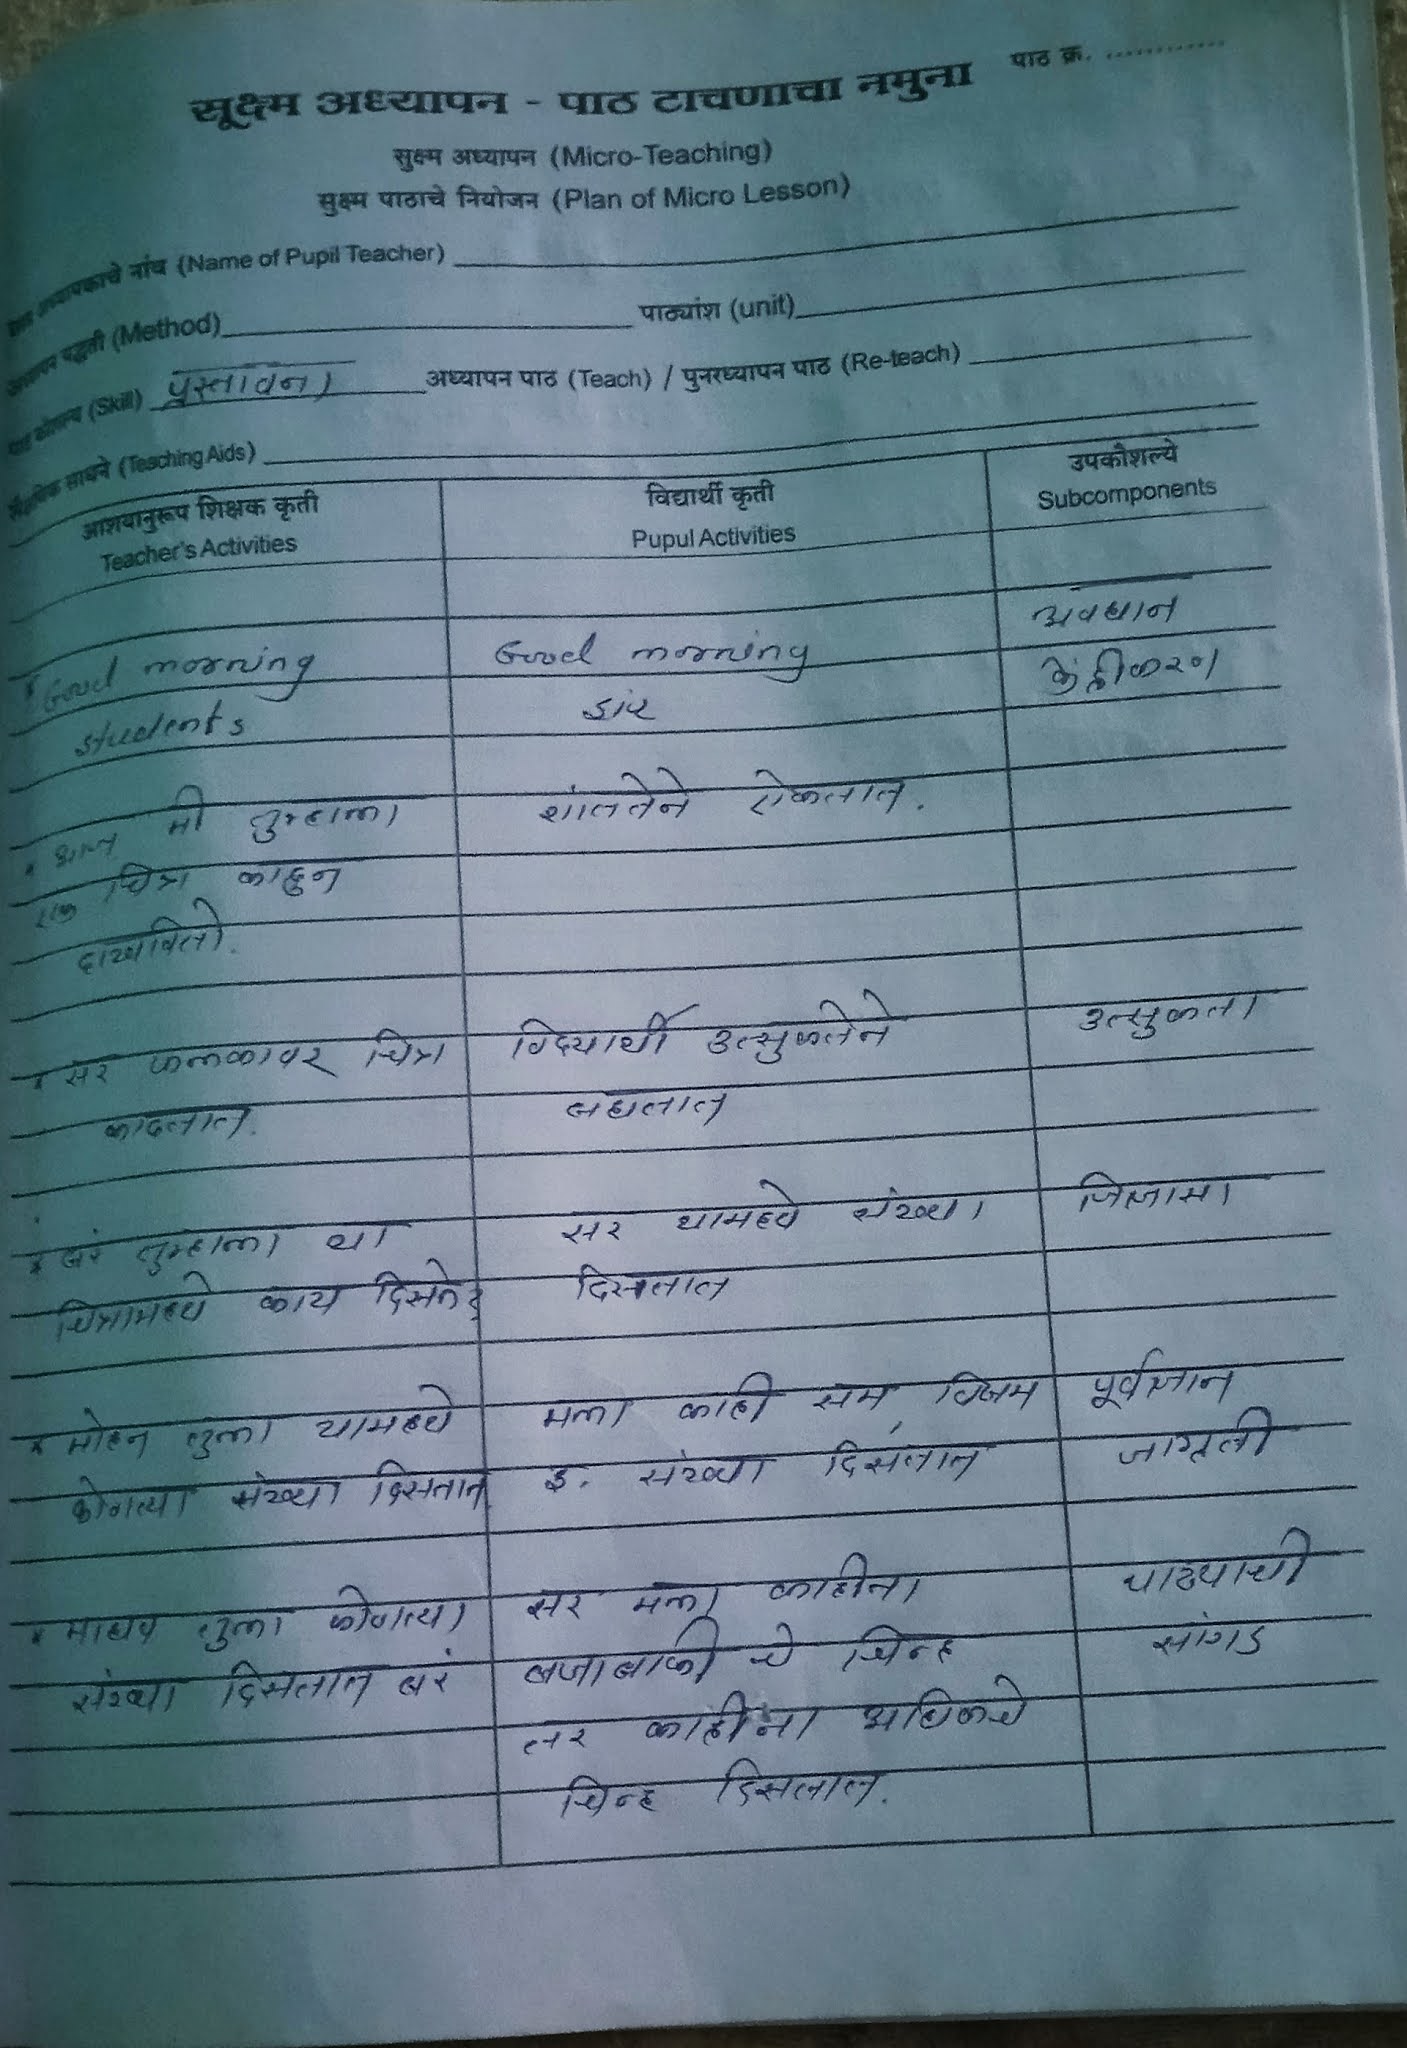 पाठ क्र. ............
सूक्ष्म अध्यापन - पाठ टाचणाचा नमुना
सुक्ष्म अध्यापन (Micro-Teaching)
सुक्ष्म पाठाचे नियोजन (Plan of Micro Lesson)
अध्यापकाचे नांव (Name of Pupil Teacher)
पद्धती (Method) पाठ्यांश (unit)
(Skill) प्रस्तावना अध्यापन पाठ (Teach) / पुनरध्यापन पाठ (Re-teach)
शैक्षणिक साधने (Teaching Aids)
आशयानुरूप शिक्षक कृती विद्यार्थी कृती उपकौशल्ये
Teacher's Activities Pupul Activities Subcomponents
Good morning Good morning अवधान
students सर केंद्रीकरण
आज मी तुम्हाला शांततेने ऐकतात.
एक चित्र काढुन
दाखवितो.
सर फलकावर चित्र विद्यार्थी उत्सुकतेने उत्सुकता
काढतात. बघतात
बरं तुम्हाला या सर यामध्ये संख्या जिज्ञासा
चित्रामध्ये काय दिसते? दिसतात
मोहन तुला यामध्ये मला काही सम, विषम पूर्वज्ञान
कोणत्या संख्या दिसतात इ. संख्या दिसतात जागृती
माधव तुला कोणत्या सर मला काहीना पाठ्याची
संख्या दिसतात बरं वजाबाकी चे चिन्ह सांगड
तर काहींना अधिकचे
चिन्ह दिसतात.